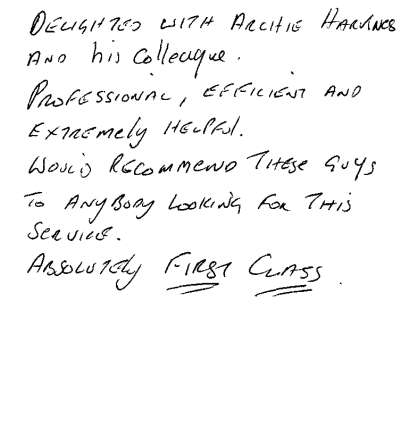 DELIGHTED WITH ARCHIE HAWKINGS
AND his Colleague.
PROFESSIONAL, EFFICIENT AND
EXTREMELY HELPFUL.
WOULD RECOMMEND THESE GUYS
TO ANYBODY LOOKING FOR THIS
SERVICE.
ABSOLUTELY FIRST CLASS.